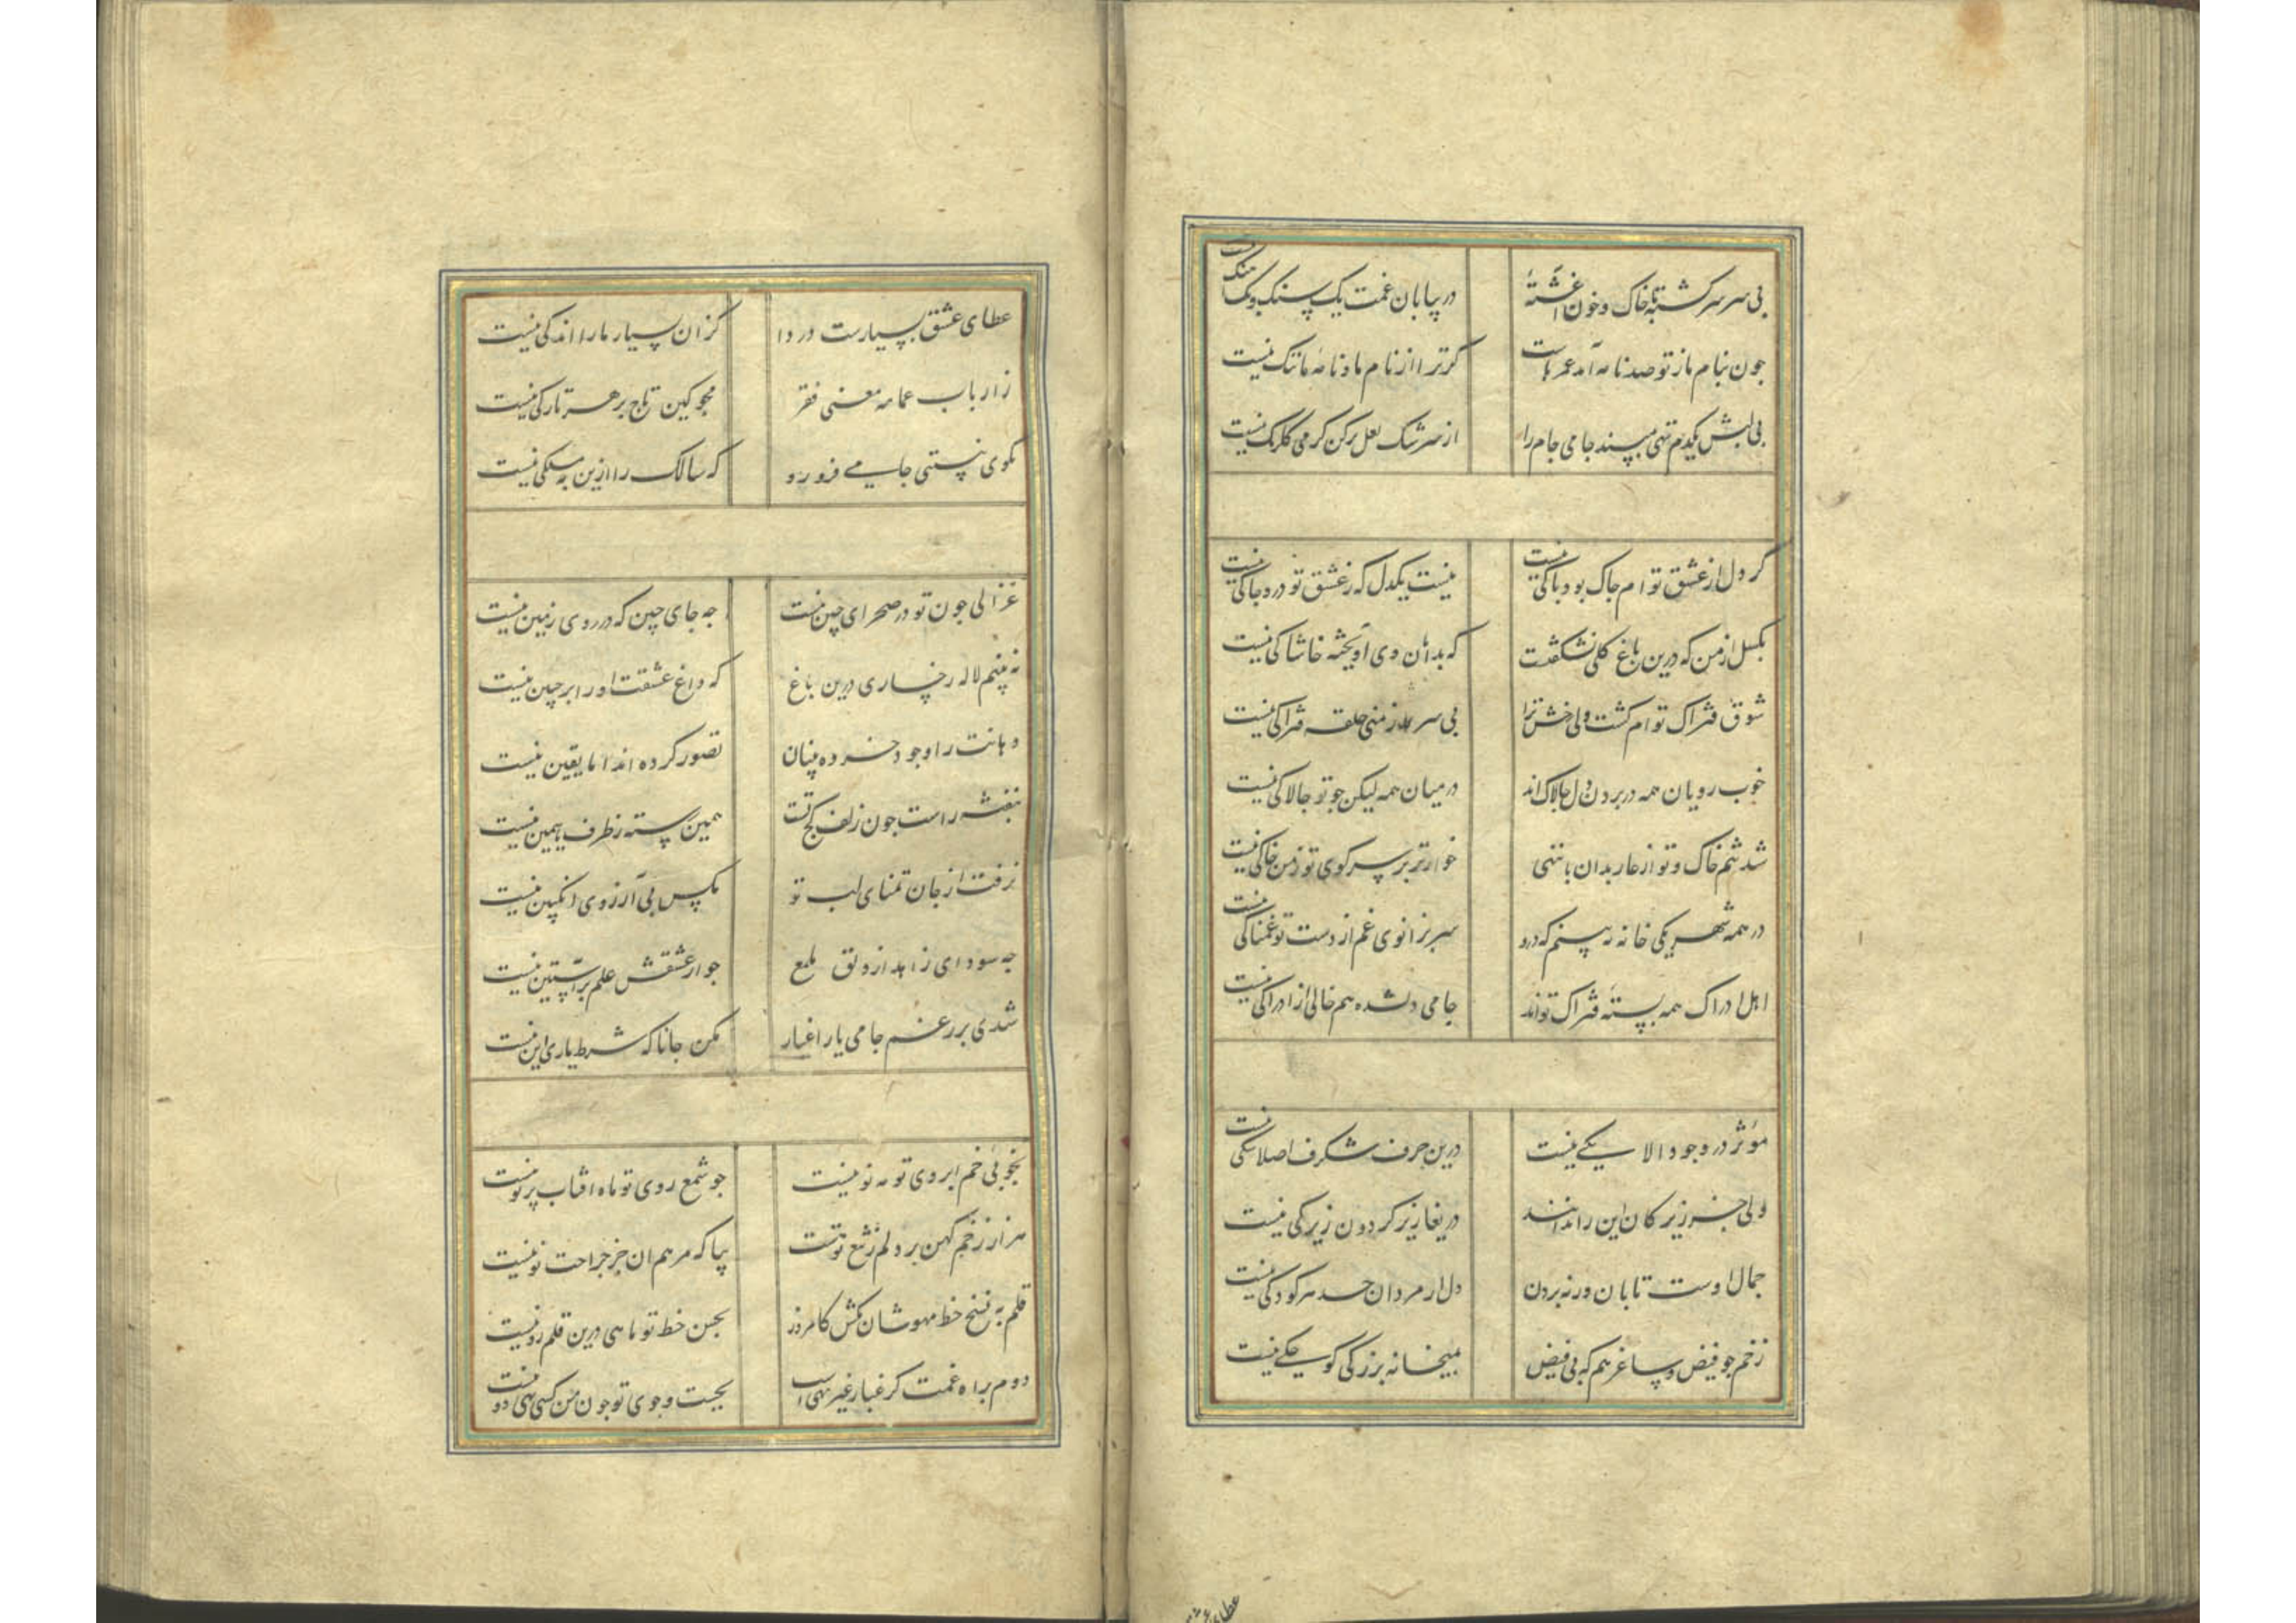 بی سر سرگشته بخاک و خون آغشتهٔ در بیابان غمت یک سنک و یک فرسنک نیست
جون بنام ما ز تو صد نامه آمد عمرهاست کر ترا از نام ما و نامهٔ ما ننک نیست
بی لبش یکدم تهی مپسند جامی جام را از سرشک لعل پر کن کر می کلرنک نیست
گر دل از عشق تو ام جاک بود باکی نیست نیست یکدل که ز عشق تو درو جاکی نیست
بکسل از من که درین باغ کلی نشکفت که بدامان وی آویخته خاشاکی نیست
شوق فتراک تو ام کشت ولی رخش ترا بی سر همجو منی حلقه فتراکی نیست
خوب رویان همه در بردن دل جالاک اند در میان همه لیکن جو تو جالاکی نیست
شد تنم خاک و تو از عار بدان پا ننهی خوارتر بر سر کوی تو ز من خاکی نیست
در همه شهر یکی خانه نه بینم که درو سر بزانوی غم از دست تو غمناکی نیست
اهل ادراک همه بستهٔ فتراک تو اند جامی دلشده هم خالی از ادراکی نیست
مؤثر در وجود الا یکی نیست درین حرف شکرف اصلا شکی نیست
ولی جز زیرکان این را ندانند دریغا زیر کردون زیرکی نیست
جمال اوست تابان ورنه بردن دل از مردان حد هر کودکی نیست
ز خم جو فیض و ساغر هم که بی فیض بمیخانه بزرکی کوجکی نیست
عطای عشق بسیارست دردا کز آن بسیار ما را اندکی نیست
ز ارباب عمامه معنی فقر مجو کین تاج بر هر تارکی نیست
بکوی نیستی جامی فرو رو که سالک را ازین به مسلکی نیست
غزالی جون تو در صحرای چین نیست جه جای چین که در روی زمین نیست
نه بینم لاله رخساری درین باغ که داغ عشقت او را بر جبین نیست
دهانت را وجود خرده بینان تصور کرده اند اما یقین نیست
بنفشه راست جون زلف کجت همین بسته ز طرف یاسمین نیست
نرفت از جان تمنای لب تو مکس بی آرزوی انکبین نیست
جه سود ای زاهد از دلق ملمع جو از عشقش علم بر آستین نیست
شدی بر رغم جامی یار اغیار مکن جانا که شرط یاری این نیست
بخوبی خم ابروی تو مه نو نیست جو شمع روی تو ماه آفتاب پرتو نیست
هزار زخم کهن بر دلم ز تیغ تو هست بیا که مرهم آن جز جراحت نو نیست
قلم به نسخ خط مهوشان بکش کامروز بحسن خط تو ماهی درین قلمرو نیست
دوم براه غمت کر غبار غیر تهی است بجست و جوی تو جون من کسی تهی دو نیست
عطای عشق